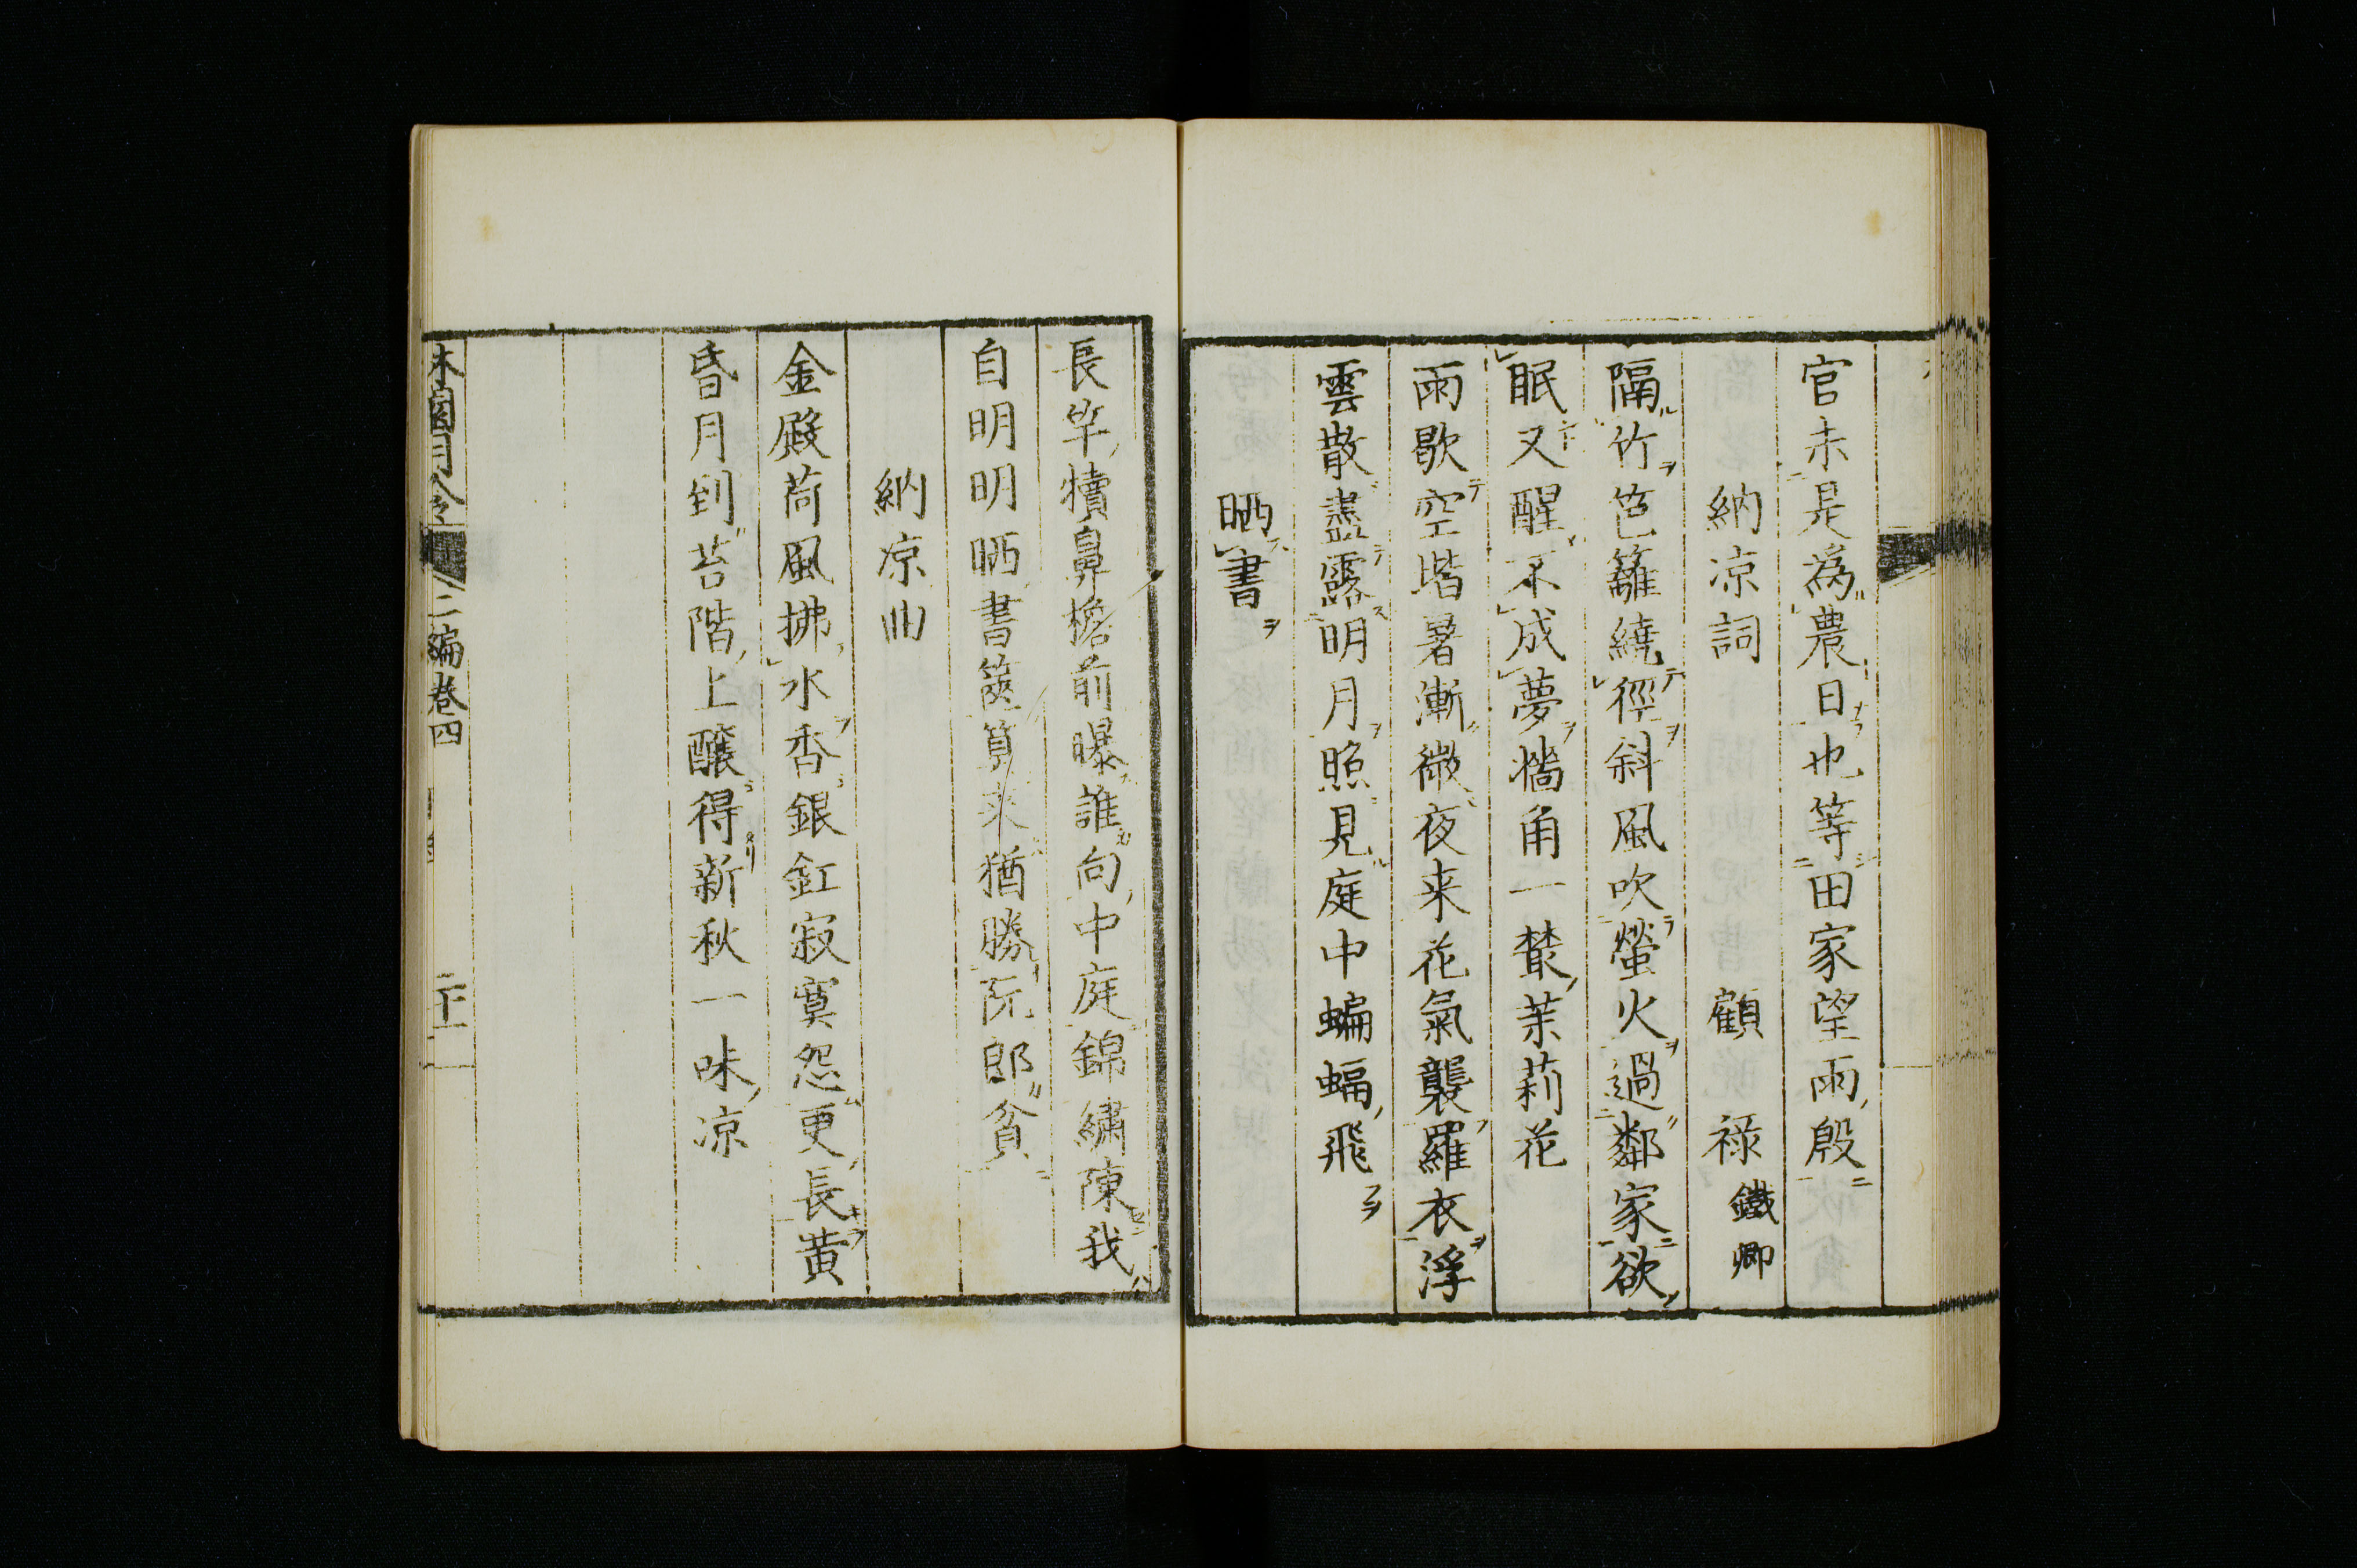 官未是為農日也等田家望雨殷
納凉詞 顧 祿 鐵卿
隔竹笆籬繞徑斜風吹螢火過鄰家欲
眠又醒不成夢墻角一叢茉莉花
雨歇空堦暑漸微夜来花氣襲羅衣浮
雲散盡露明月照見庭中蝙蝠飛
晒書
長竿犢鼻檐前曝誰向中庭錦繡陳我
自明明晒書篋算来猶勝阮郎貧
納凉曲
金殿荷風拂水香銀釭寂寞怨更長黄
昏月到苔階上釀得新秋一味凉
月令 二編卷四